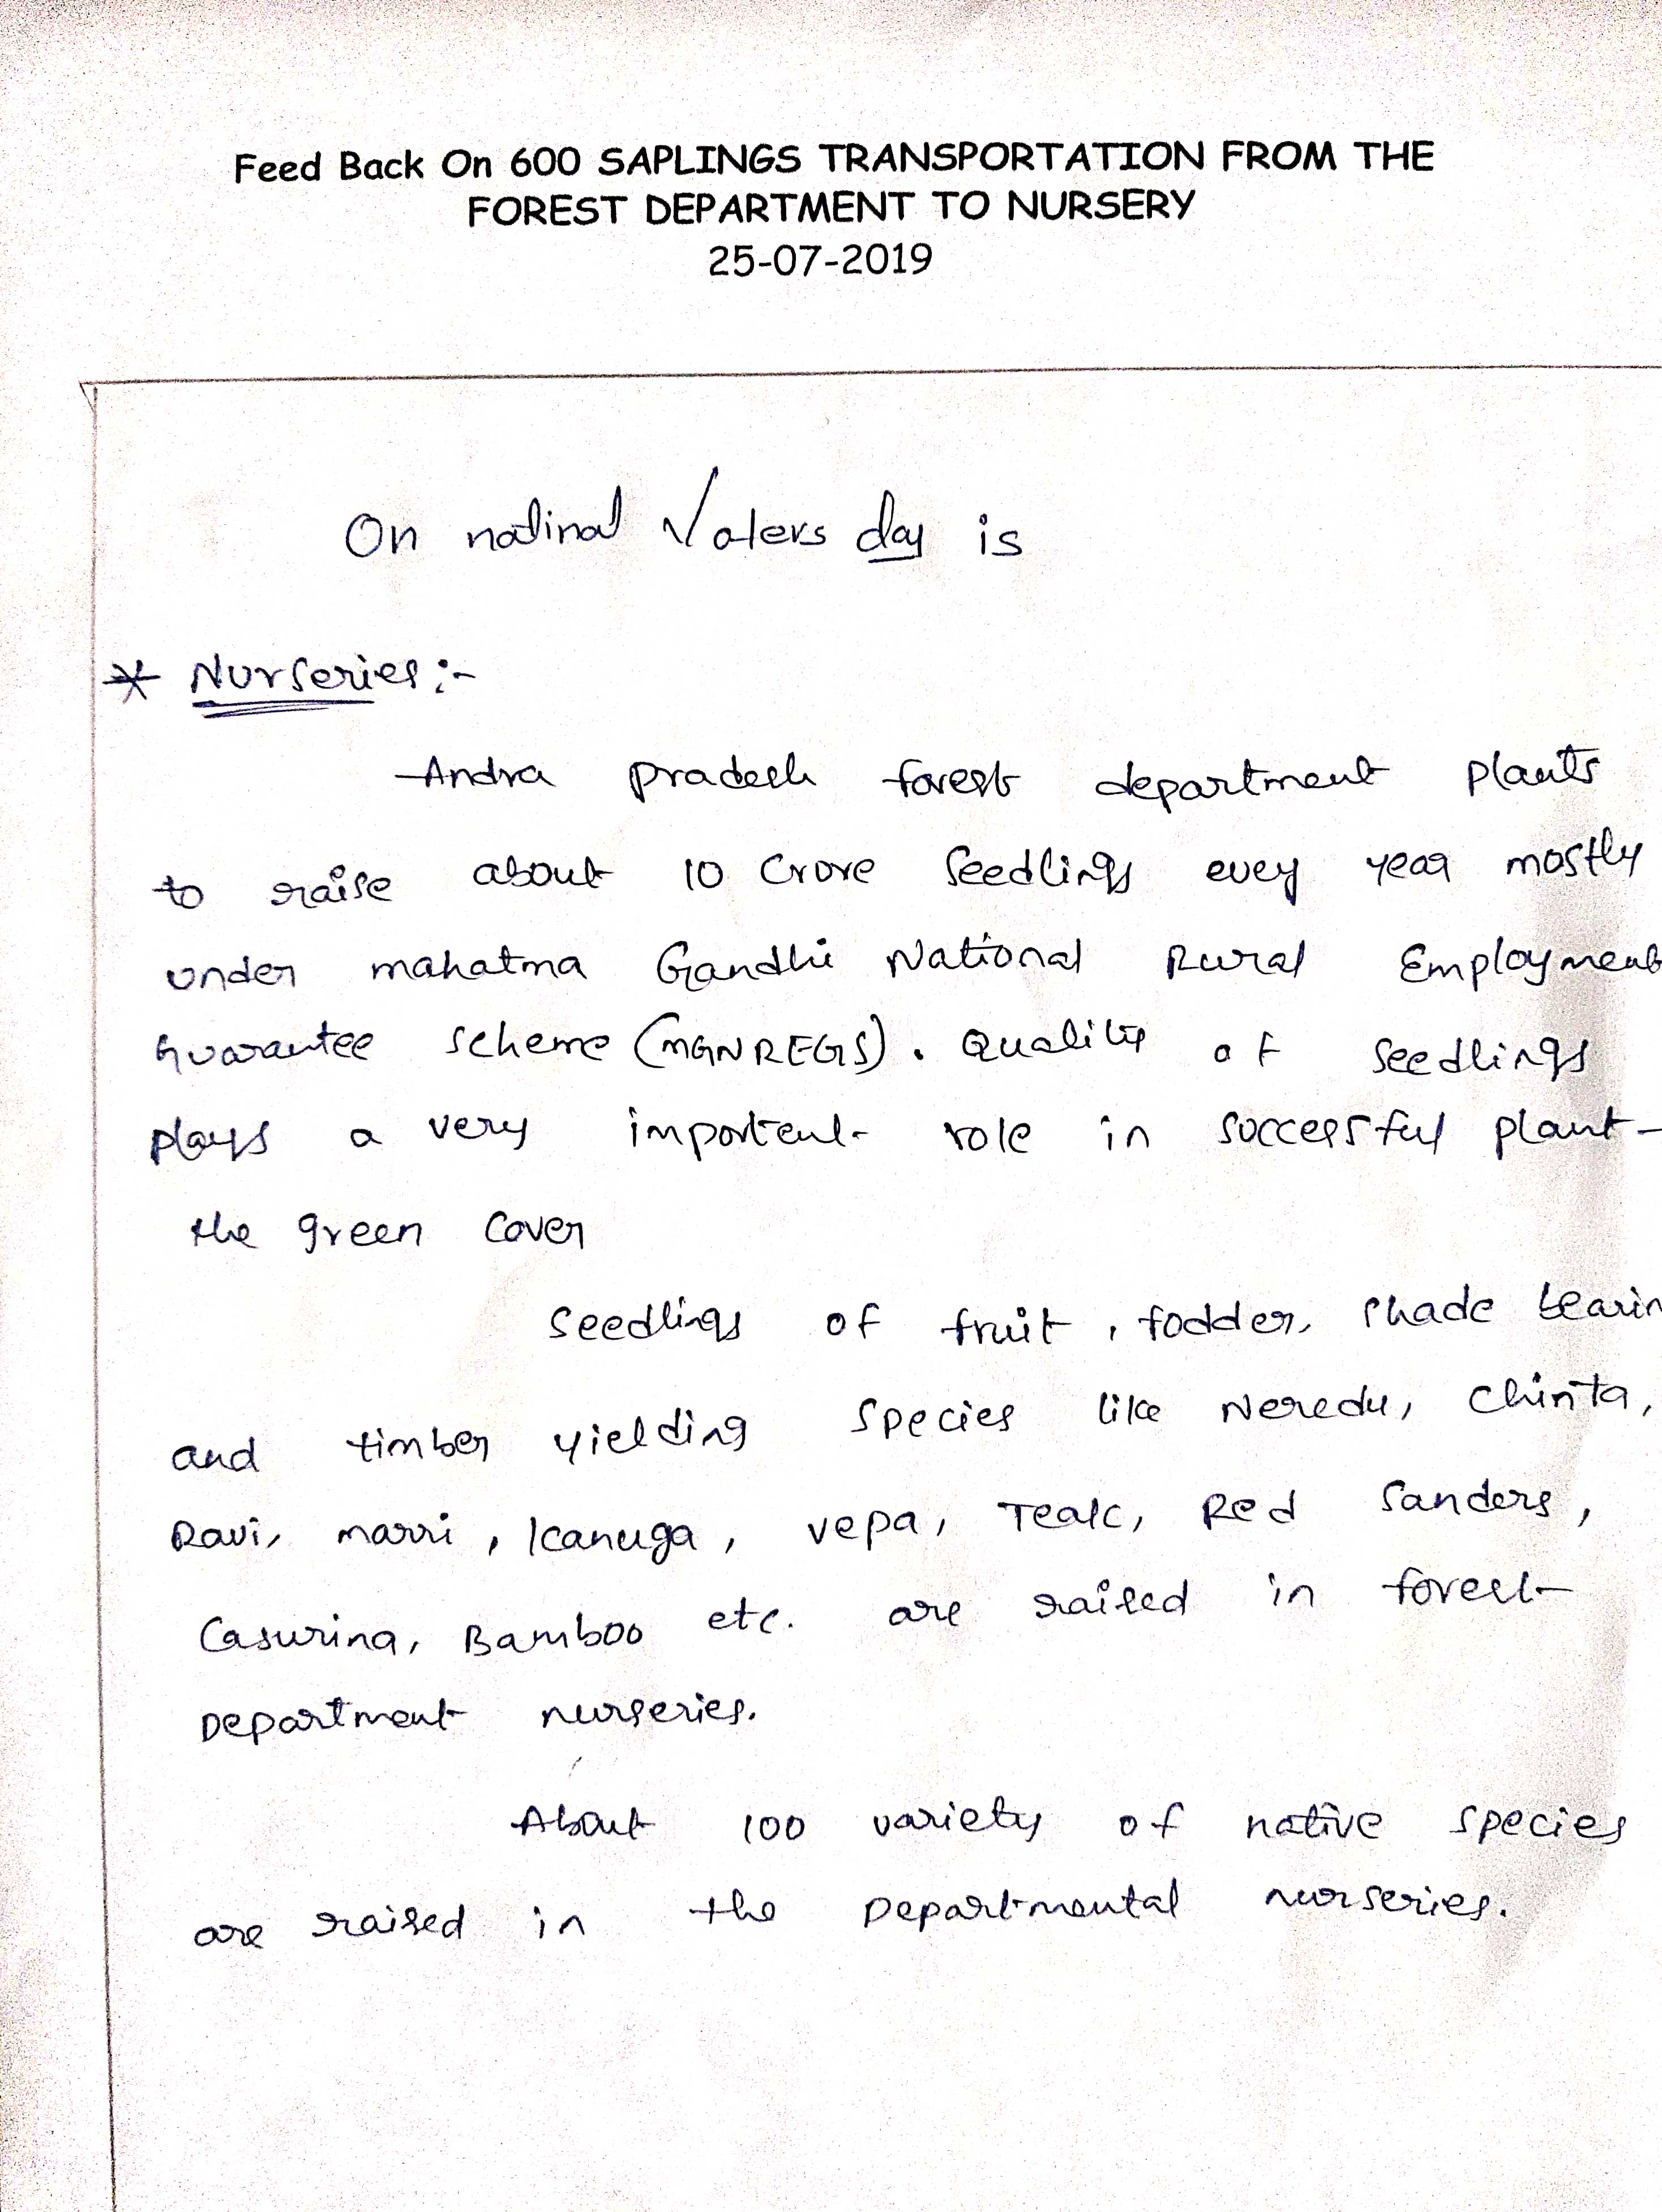 Feed Back On 600 SAPLINGS TRANSPORTATION FROM THE
FOREST DEPARTMENT TO NURSERY
25-07-2019
On natinal Voters day is
* Nurseries:-
Andra pradesh forest department plants
to raise about 10 Crore Seedlings evey year mostly
under mahatma Gandhi National Rural Employment
Guarantee Scheme (MGNREGS). Quality of Seedlings
plays a very importent role in successful plant-
the green Cover
Seedlings of fruit, fodder, shade bearin
and timber yielding Species like Neredu, Chinta,
Ravi, marri, Kanuga, vepa, Teak, Red Sanders,
Casurina, Bamboo etc. are raised in forest
Department nurseries.
About 100 variety of native species
are raised in the Departmental nurseries.